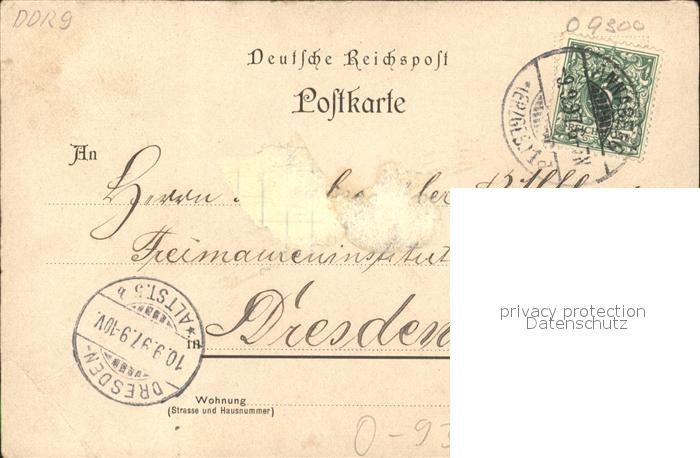 DDR9
O 9300
Deutsche Reichspost
Postkarte
An
Herrn
Freimaureninstitut
in Dresden
DRESDEN ALTST. 5 b
10.9.97. 9-10V.
Wohnung
(Strasse und Hausnummer)
0-93
privacy protection
Datenschutz